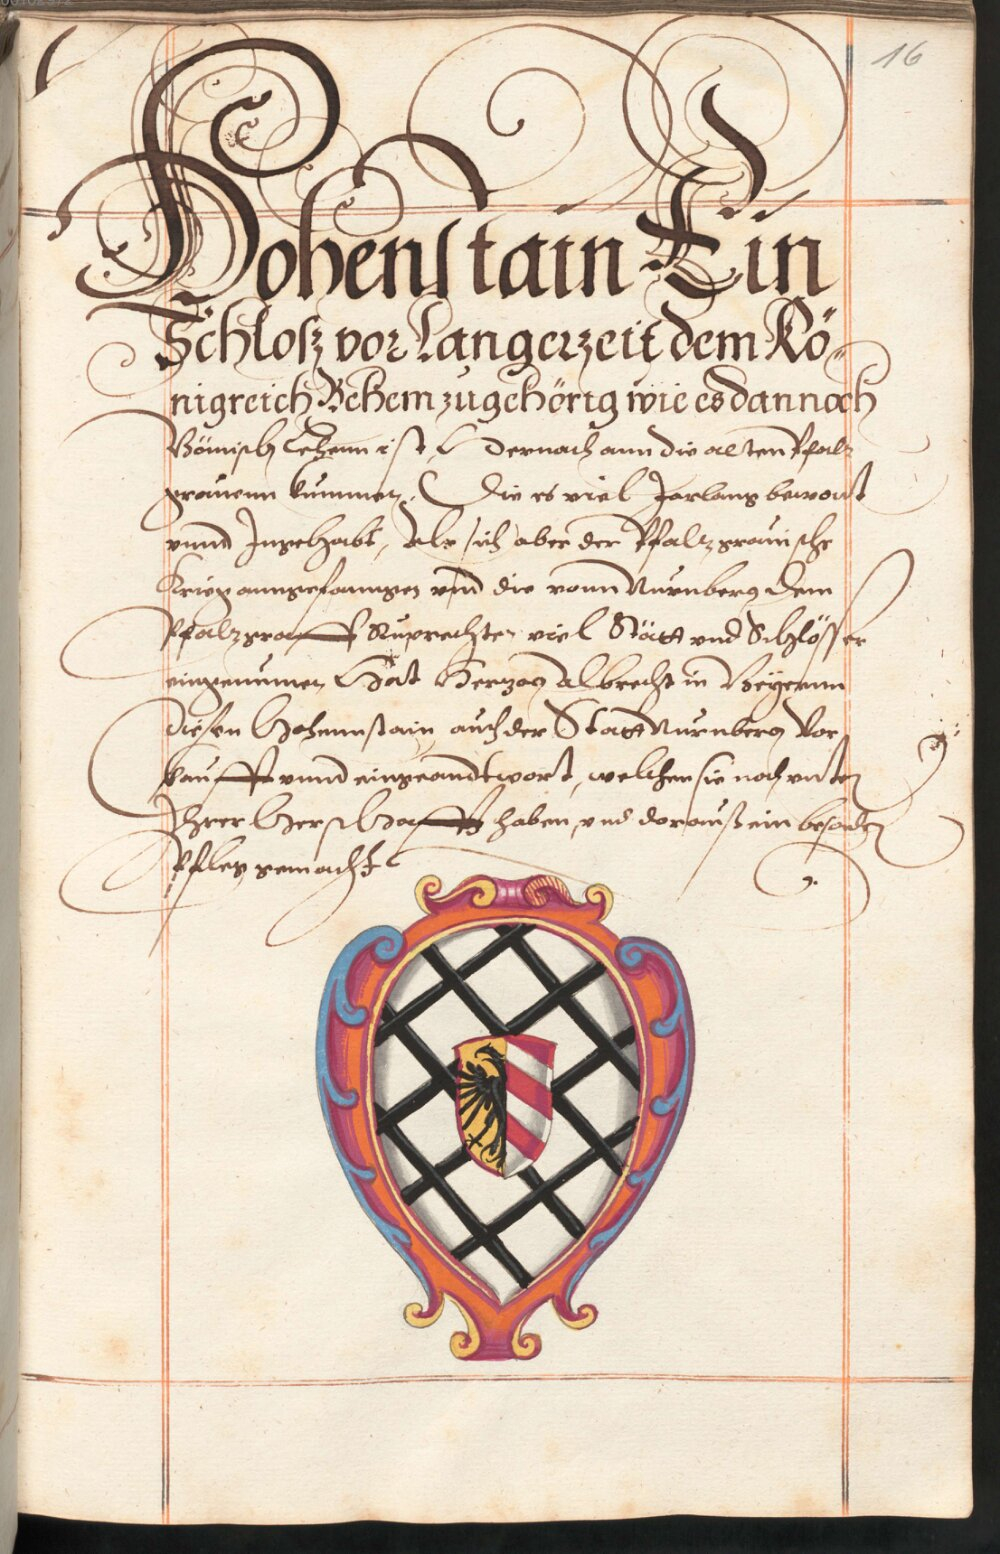 16
Hohenstain Ein
Schlosz vor Langerzeit dem Kö-
nigreich Behem zugehörig wie es dannoch
Bömisch Lehenn ist, Dernach ann die alten Pfalz
grauenn kummen. Die es viel Jarlang bewont
vnnd Jngehabt, Als sich aber der Pfaltzgrauische
Krieg anngefanngen vnd die vonn Nurnberg dem
Pfaltzgraff Ruprechten viel Stätt vnd Schlösser
eingenummen Hat Hertzog Albrecht in Beyernn
diesen Hohennstain auch der Statt Nurnberg Vor
kaufft vnnd eingeandtwort, welchen sie noch vnter
Jhrer Herschafft haben, vnd darauß ein besonder
Pfleg gemacht